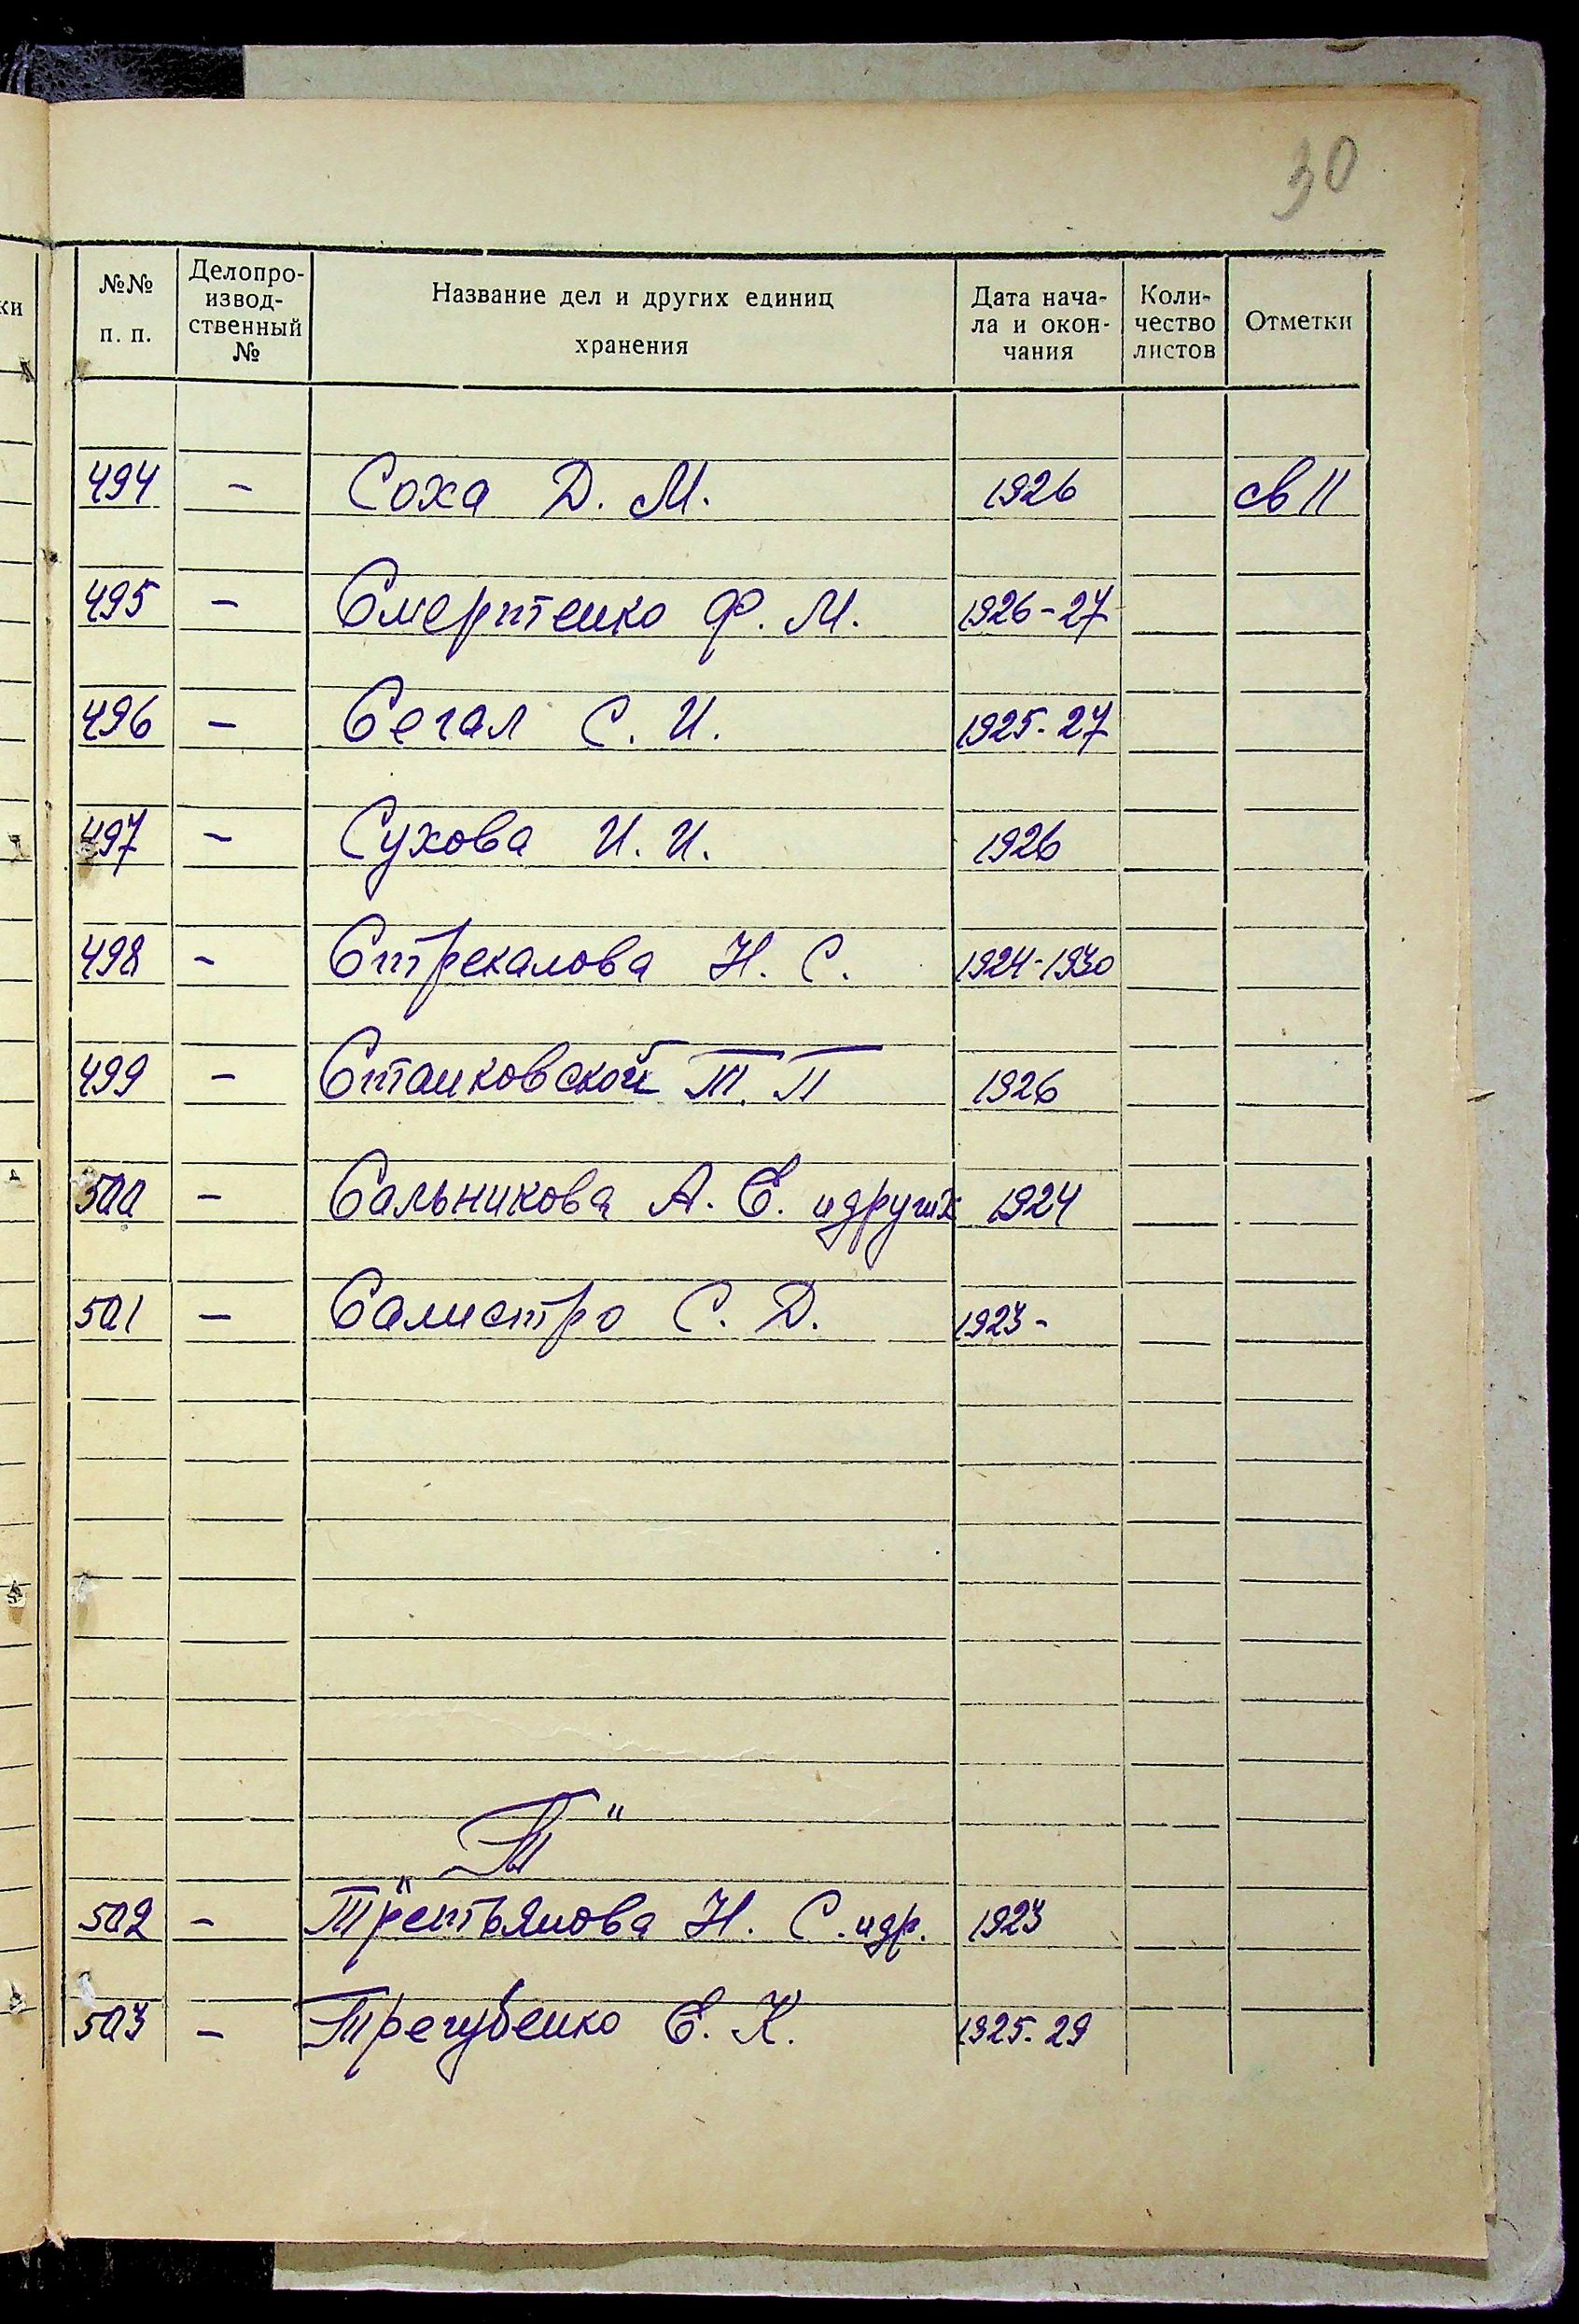 30
№№ п. п. Делопро-извод-ственный № Название дел и других единиц хранения Дата нача-ла и окон-чания Коли-чество листов Отметки
494 - Соха Д. М. 1926 св 11
495 - Смертенко Ф. М. 1926-27
496 - Сегал С. И. 1925-27
497 - Сухова И. И. 1926
498 - Стрекалова Н. С. 1924-1930
499 - Станковской Т. П 1926
500 - Сальникова А. Е. и других 1924
501 - Салистро С. Д. 1923-
"Т"
502 - Третьянова Н. С. и др. 1923
503 - Трегубенко Е. К. 1925-29